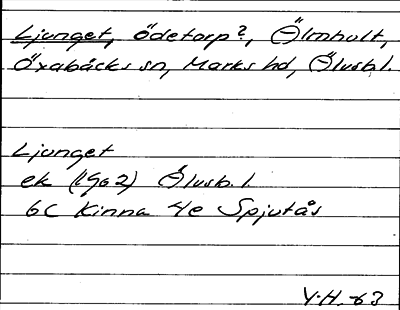 Ljunget, ödetorp?, Ölmhult,
Öxabäcks sn, Marks hd, Älvsb l.
Ljunget
ek (1962) Älvsb. l
6C Kinna 4e Spjutås
Y.H. -63